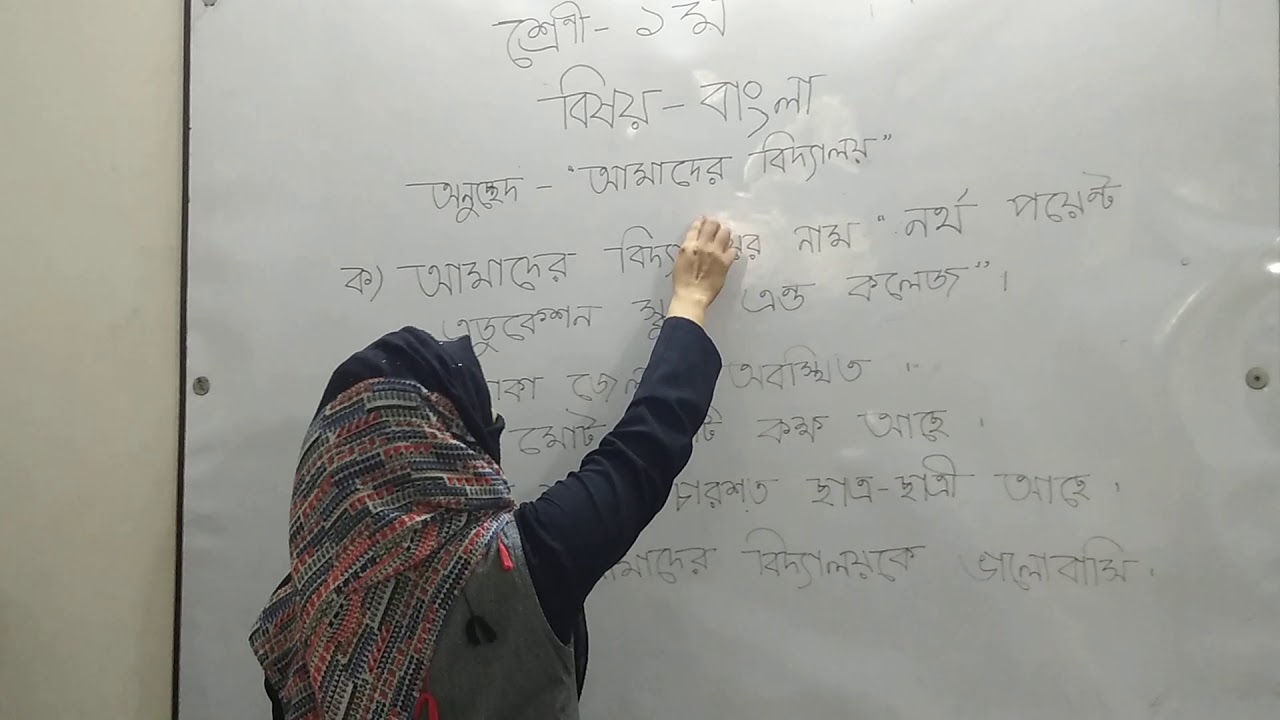 শ্রেণী - ১ম
বিষয় - বাংলা
অনুচ্ছেদ - "আমাদের বিদ্যালয়"
ক) আমাদের নাম "নর্থ পয়েন্ট
এডুকেশন এন্ড কলেজ"।
অবস্থিত ।
মোট কক্ষ আছে ।
চারশত ছাত্র-ছাত্রী আছে ।
বিদ্যালয়কে ভালোবাসি ।